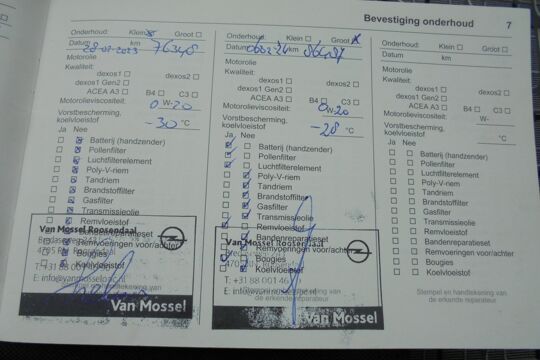 Bevestiging onderhoud 7
Onderhoud: Klein Groot
Datum 28-07-2023 km 76348
Motorolie
Kwaliteit:
dexos1
dexos2
dexos1 Gen2
ACEA A3 B4 C3
Motorolieviscositeit: 0 W-20
Vorstbescherming,
koelvloeistof -30 °C
Ja Nee
Batterij (handzender)
Pollenfilter
Luchtfilterelement
Poly-V-riem
Tandriem
Brandstoffilter
Gasfilter
Transmissieolie
Remvloeistof
Bandenreparatieset
Remvoeringen voor/achter
Bougies
Koelvloeistof
Van Mossel Roosendaal
T: +31 88 001
E: info@vanmossel
Van Mossel
Onderhoud: Klein Groot
Datum km
Motorolie
Kwaliteit:
dexos1
dexos2
dexos1 Gen2
ACEA A3 B4 C3
Motorolieviscositeit: 0W-20
Vorstbescherming,
koelvloeistof -28 °C
Ja Nee
Batterij (handzender)
Pollenfilter
Luchtfilterelement
Poly-V-riem
Tandriem
Brandstoffilter
Gasfilter
Transmissieolie
Remvloeistof
Bandenreparatieset
Remvoeringen voor/achter
Bougies
Koelvloeistof
Van Mossel Roosendaal
T: +31 88 001 46
Van Mossel
Onderhoud: Klein Groot
Datum km
Motorolie
Kwaliteit:
dexos1
dexos2
dexos1 Gen2
ACEA A3 B4 C3
Motorolieviscositeit:
W-
Vorstbescherming,
koelvloeistof °C
Ja Nee
Batterij (handzender)
Pollenfilter
Luchtfilterelement
Poly-V-riem
Tandriem
Brandstoffilter
Gasfilter
Transmissieolie
Remvloeistof
Bandenreparatieset
Remvoeringen voor/achter
Bougies
Koelvloeistof
Stempel en handtekening van
de erkende reparateur